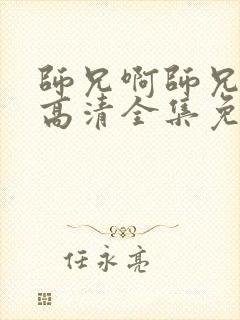 師兄啊師兄
高清全集免
任永亮